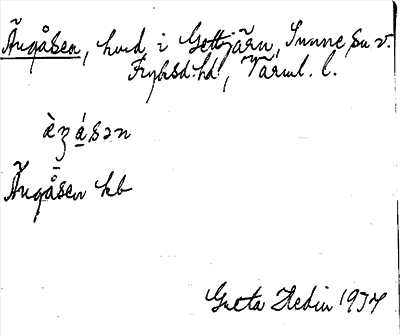 Ängåsen, hmd i Gettjärn, Sunne sn v.
Fryksd. hd, Värml. l.
ὰʒá̱sən
Ängåsen kb
Greta Hedin 1937